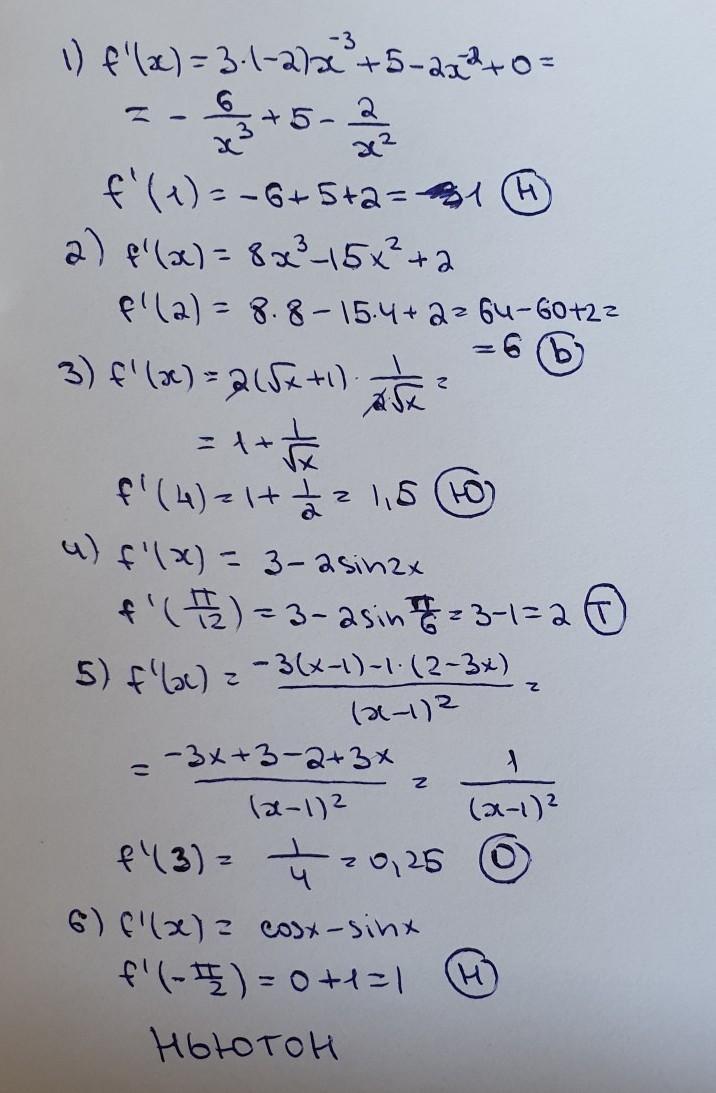 1) f'(x) = 3·(-2)x⁻³ + 5 - 2x⁻² + 0 =
= - 6/x³ + 5 - 2/x²
f'(1) = -6 + 5 + 2 = 1 Н
2) f'(x) = 8x³ - 15x² + 2
f'(2) = 8·8 - 15·4 + 2 = 64 - 60 + 2 =
= 6 Ь
3) f'(x) = 2(√x + 1) · 1/(2√x) =
= 1 + 1/√x
f'(4) = 1 + 1/2 = 1,5 Ю
4) f'(x) = 3 - 2sin2x
f'(π/12) = 3 - 2sin π/6 = 3 - 1 = 2 Т
5) f'(x) = (-3(x-1) - 1·(2-3x))/(x-1)² =
= (-3x + 3 - 2 + 3x)/(x-1)² = 1/(x-1)²
f'(3) = 1/4 = 0,25 О
6) f'(x) = cosx - sinx
f'(-π/2) = 0 + 1 = 1 Н
НЬЮТОН